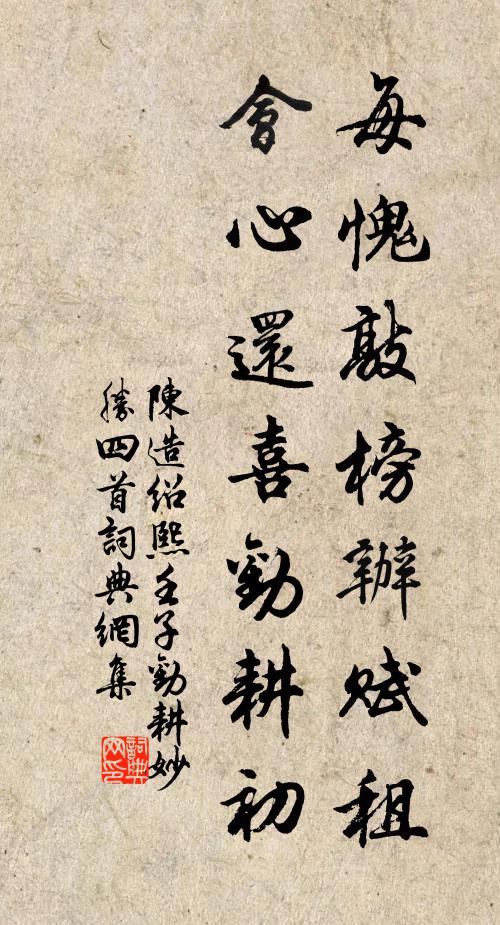 每愧敲榜辦賦租
會心還喜勸耕初
陳造紹熙壬子勸耕妙
勝四首詞典網集
詞典網印